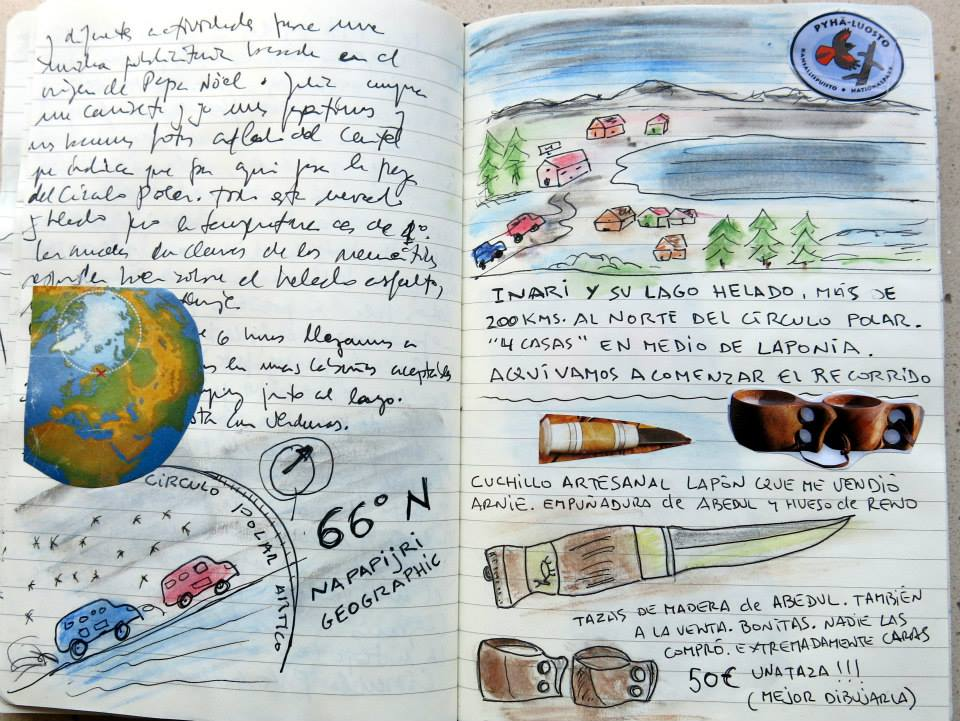 y
actividades para una
basada en el
origen de Papa Noel.
compra
una camiseta y yo unos
y
nos hacemos fotos al lado del cartel
que indica que por aquí pasa la
del Círculo Polar. Todo está nevado
y helado pero la temperatura es de
Las ruedas con clavos de los neumáticos
bien sobre el helado asfalto,
6
llegamos a
en unas cabañas aceptables
junto al lago.
con verduras.
CÍRCULO POLAR ARTICO
66º N
NAPAPIJRI
GEOGRAPHIC
PYHÄ-LUOSTO
KANSALLISPUISTO • NATIONALPARK
INARI Y SU LAGO HELADO, MÁS DE
200 KMS. AL NORTE DEL CÍRCULO POLAR.
"4 CASAS" EN MEDIO DE LAPONIA.
AQUÍ VAMOS A COMENZAR EL RECORRIDO
CUCHILLO ARTESANAL LAPÓN QUE ME VENDIÓ
ARNIE. EMPUÑADURA de ABEDUL Y HUESO de RENO
TAZAS DE MADERA de ABEDUL. TAMBIÉN
A LA VENTA. BONITAS. NADIE LAS
COMPRÓ. EXTREMADAMENTE CARAS
50€ UNA TAZA !!!
(MEJOR DIBUJARLA)